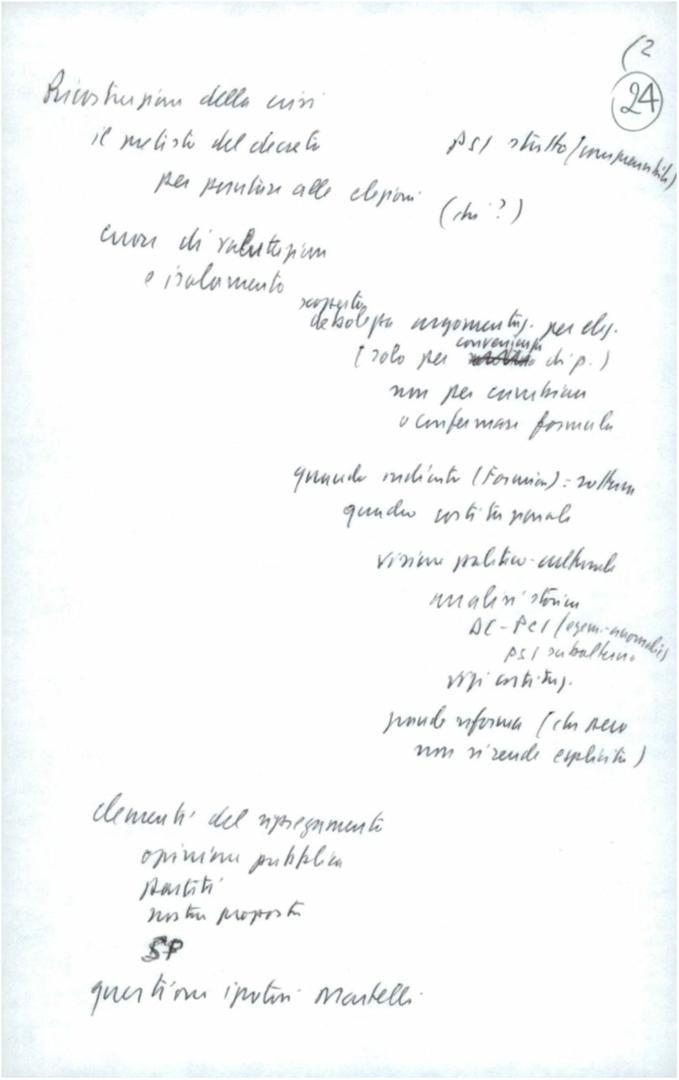 (2
24
Ricostruzione della crisi
il pretesto del decreto
PSI stretto (
per puntare alle elezioni (chi?)
errori di valutazione
e isolamento
scoperta
debolezza argomentaz. per elez.
(solo per convenienza di p.)
non per cambiare
o confermare formula
quando indicata (Formica) = rottura
quadro costituzionale
visione politico-culturale
analisi storica
DC-PCI (egem.-anomalie)
PSI subalterno
vizi costituz.
grande riforma (che però
non si rende esplicita)
elementi del ripiegamento
opinione pubblica
partiti
nostra proposta
SP
questione ipotesi Martelli